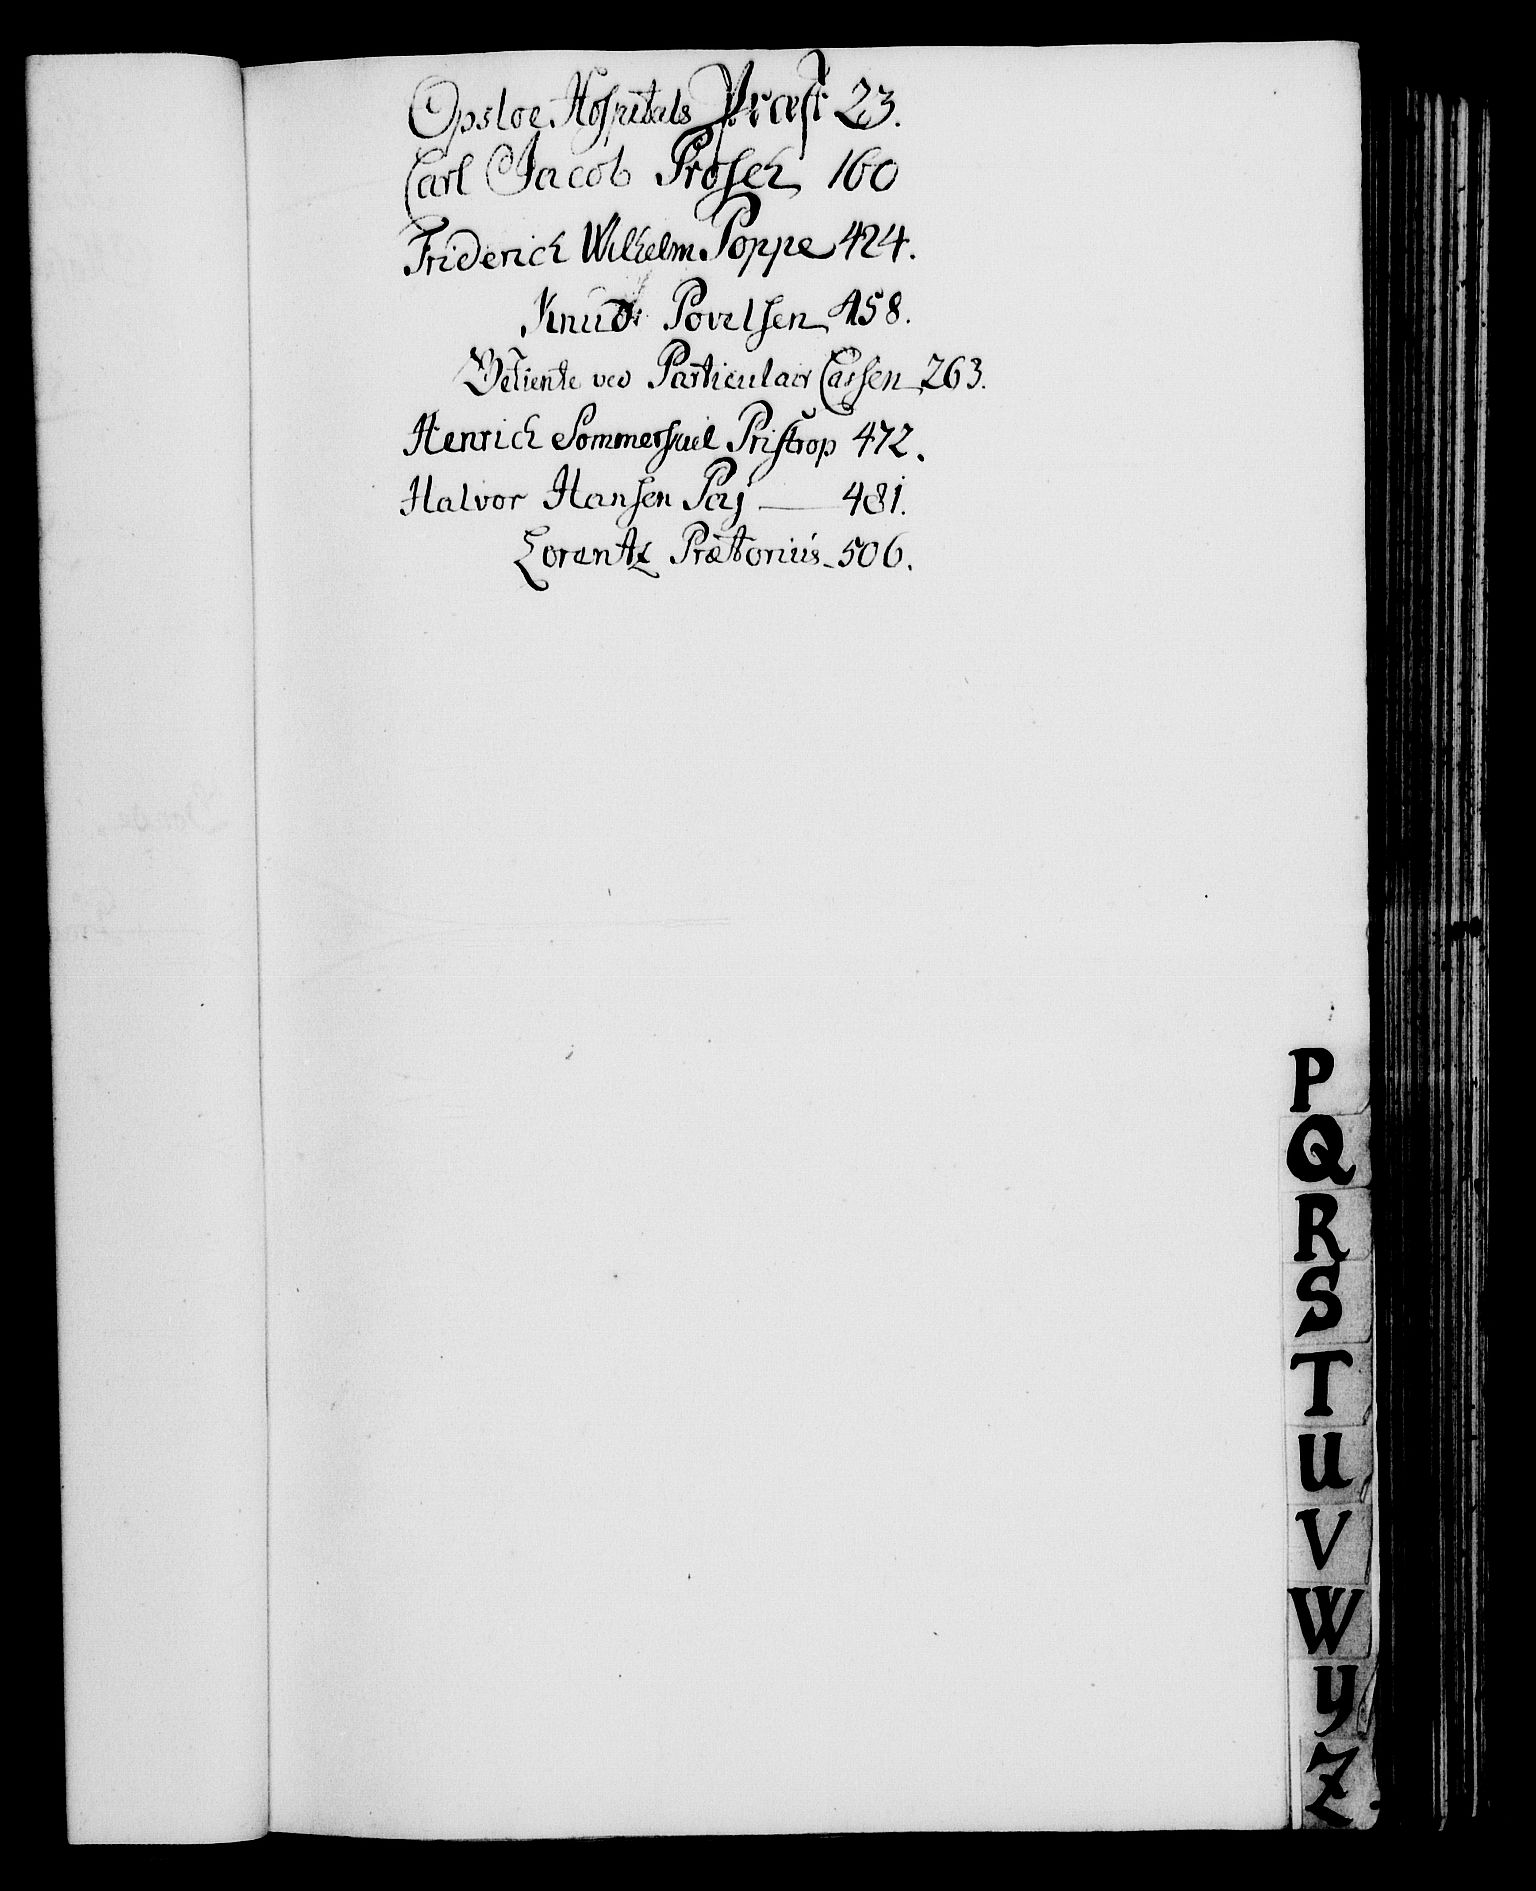 Opsloe Hospitals Præst 23.
Carl Jacob Prosch 160
Friderich Wilhelm Poppe 424.
Knud Povelsen 458.
Betiente ved Particulair Cassen 263.
Henrich Sommerfuel Pristrop 472.
Halvor Hansen Paj 481.
Lorentz Prætorius 506.
P
Q
R
S
T
U
V
W
Y
Z